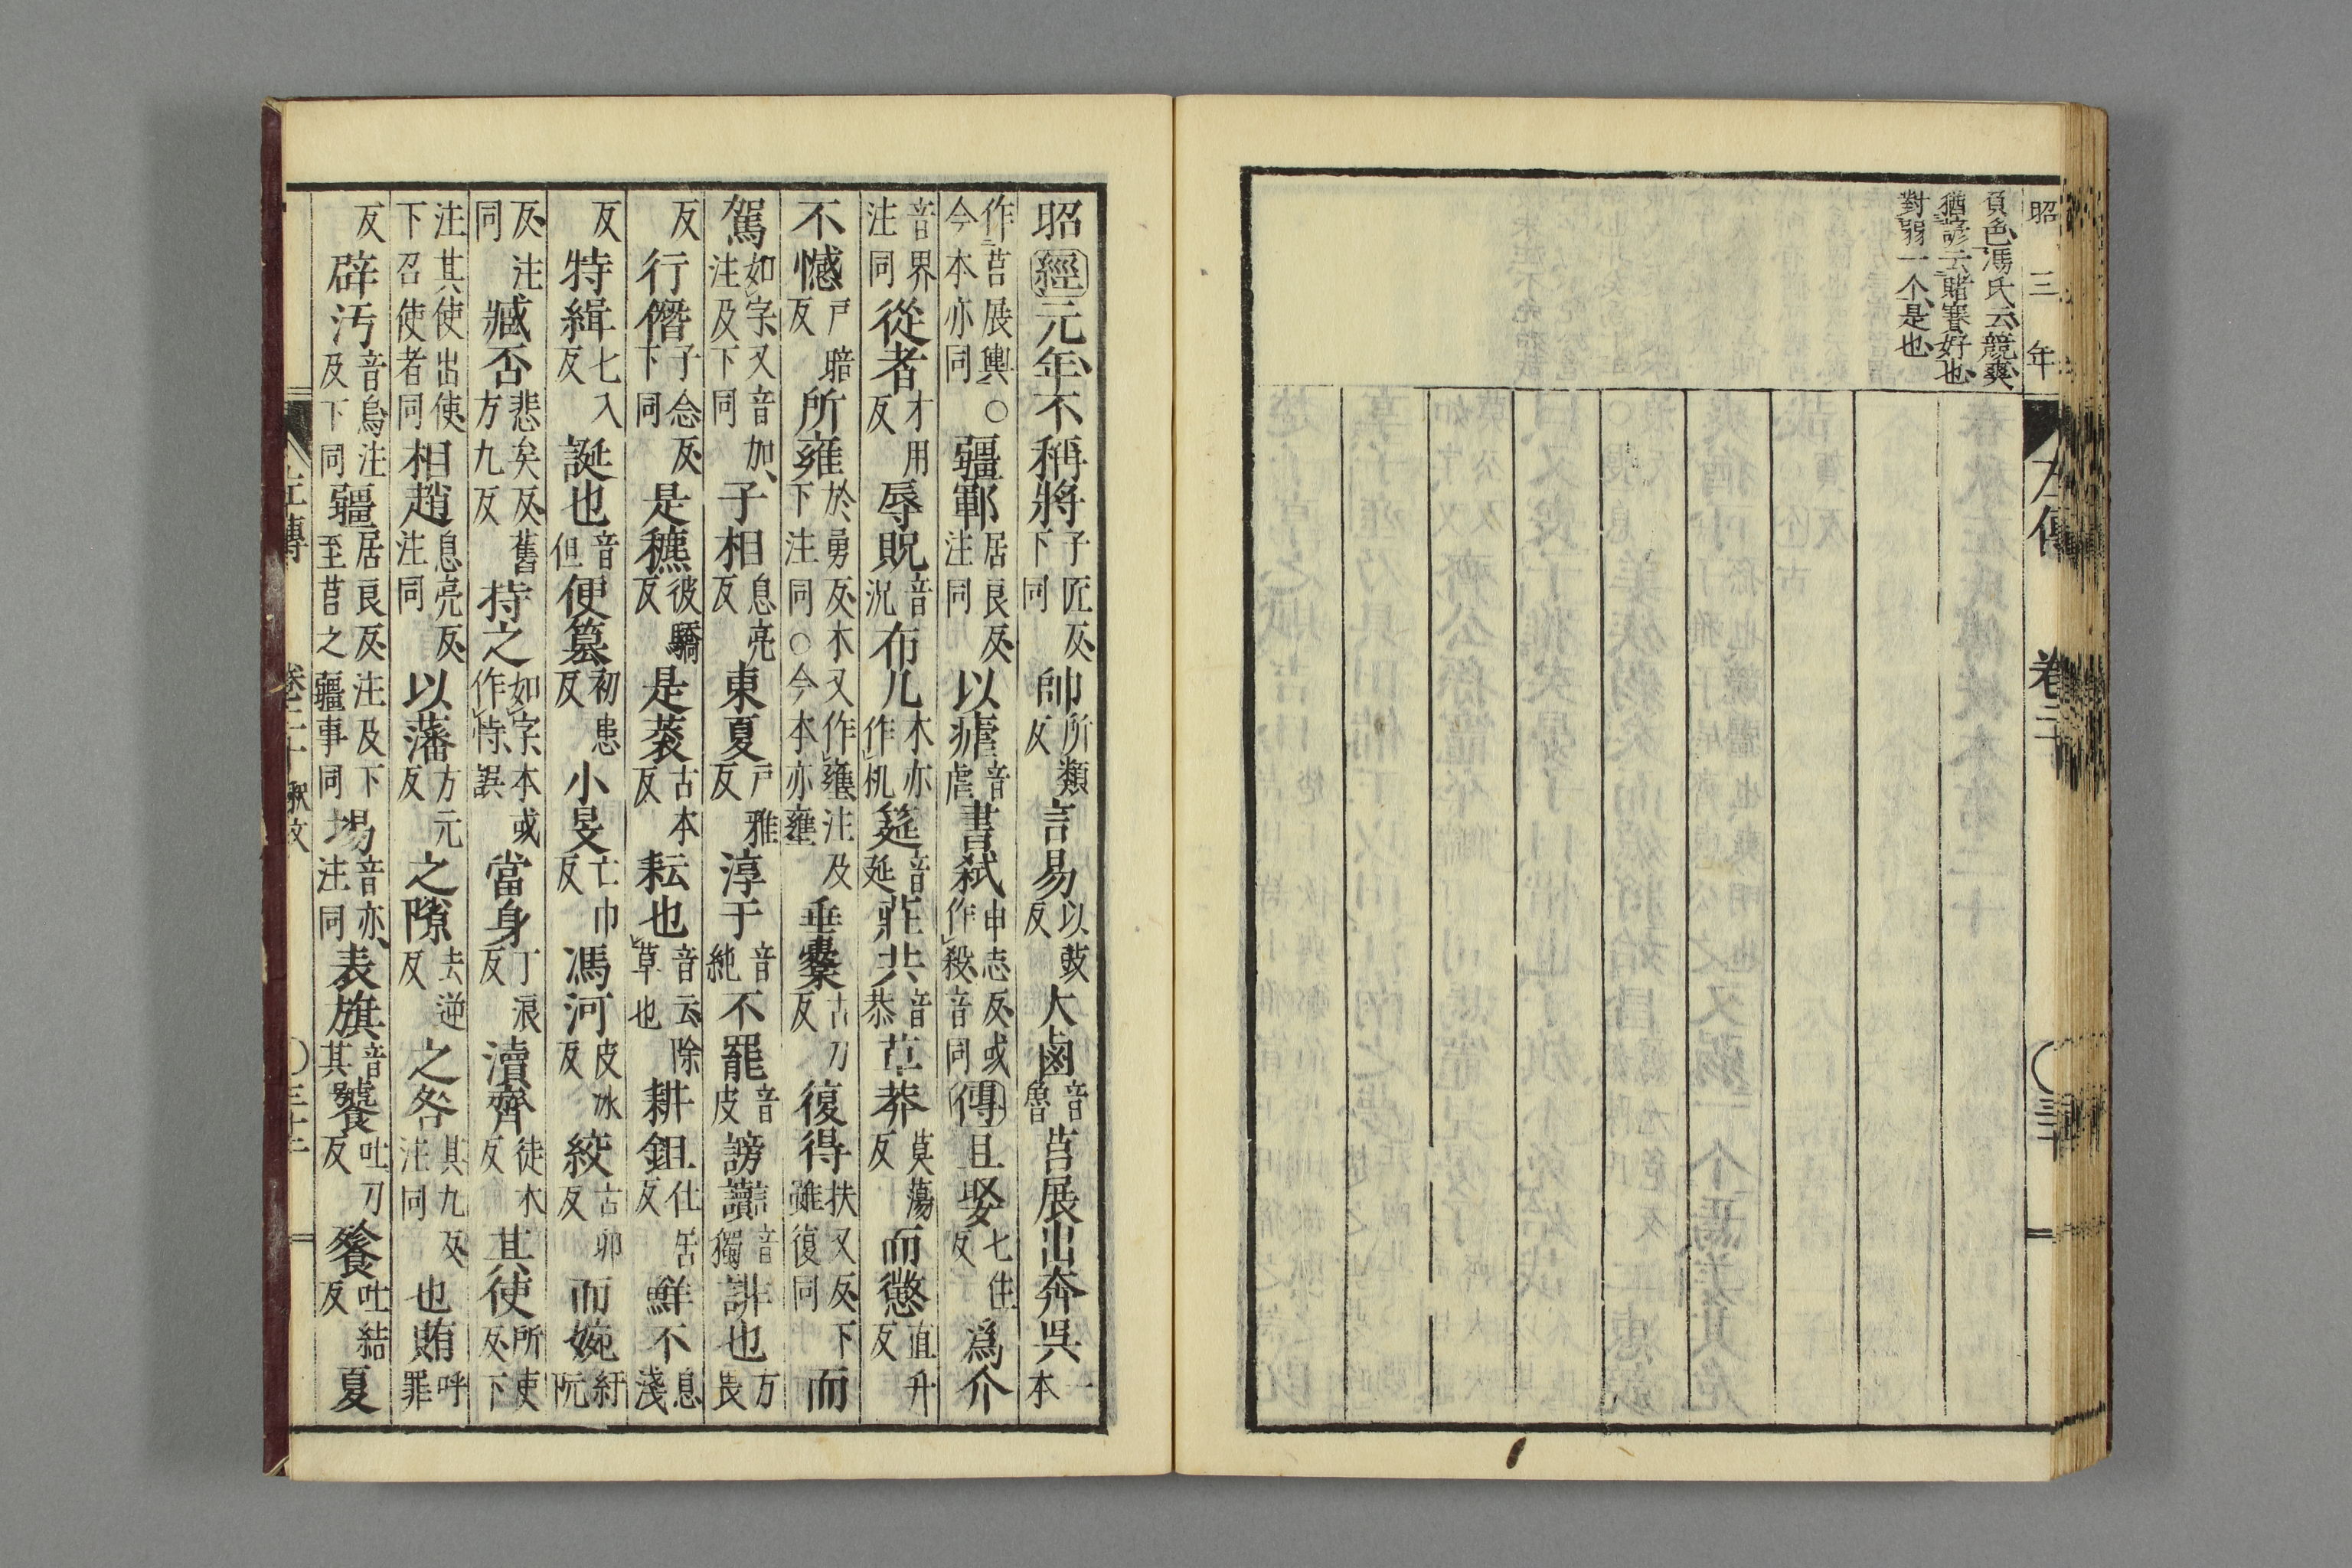 昭三年
左傳 卷二十
負色馮氏云競爽
猶諺云賭賽好也
對弱一个是也
昭經元年不稱將子匠反下同帥所類反言易以豉反大鹵音魯莒展出奔吳一本
作莒展輿〇今本亦同疆鄆居良反注同以瘧音虐書弒申志反或作殺音同傳且娶七住反爲介
音界注同從者才用反辱貺音況布几本亦作机筵音延莊共音恭草莽莫蕩反而懲直升反
不憾戶暗反所雍於勇反本又作壅注及下注同〇今本亦壅垂櫜古刀反復得扶又反下雖復同而
駕如字又音加注及下同子相息亮反東夏戶雅反淳于音純不罷音皮謗讟音獨誹也方畏
反行僭子念反下同是穮彼驕反是蓘古本反耘也音云除草也耕鉏仕苦反鮮不息淺
反特緝七入反誕也音但便篡初患反小旻亡巾反馮河皮冰反絞古卯反而婉紆阮
反注同臧否悲矣反舊方九反持之如字本或作恃誤當身丁浪反瀆齊徒木反其使所吏反下
注其使出使下召使者同相趙息亮反注同以藩方元反之隙去逆反之咎其九反注同也賄呼罪
反辟汚音烏注及下同疆居良反注及下至莒之疆事同場音亦注同表旗音其饕吐刀反餮吐結反夏
左傳 卷二十 釋文